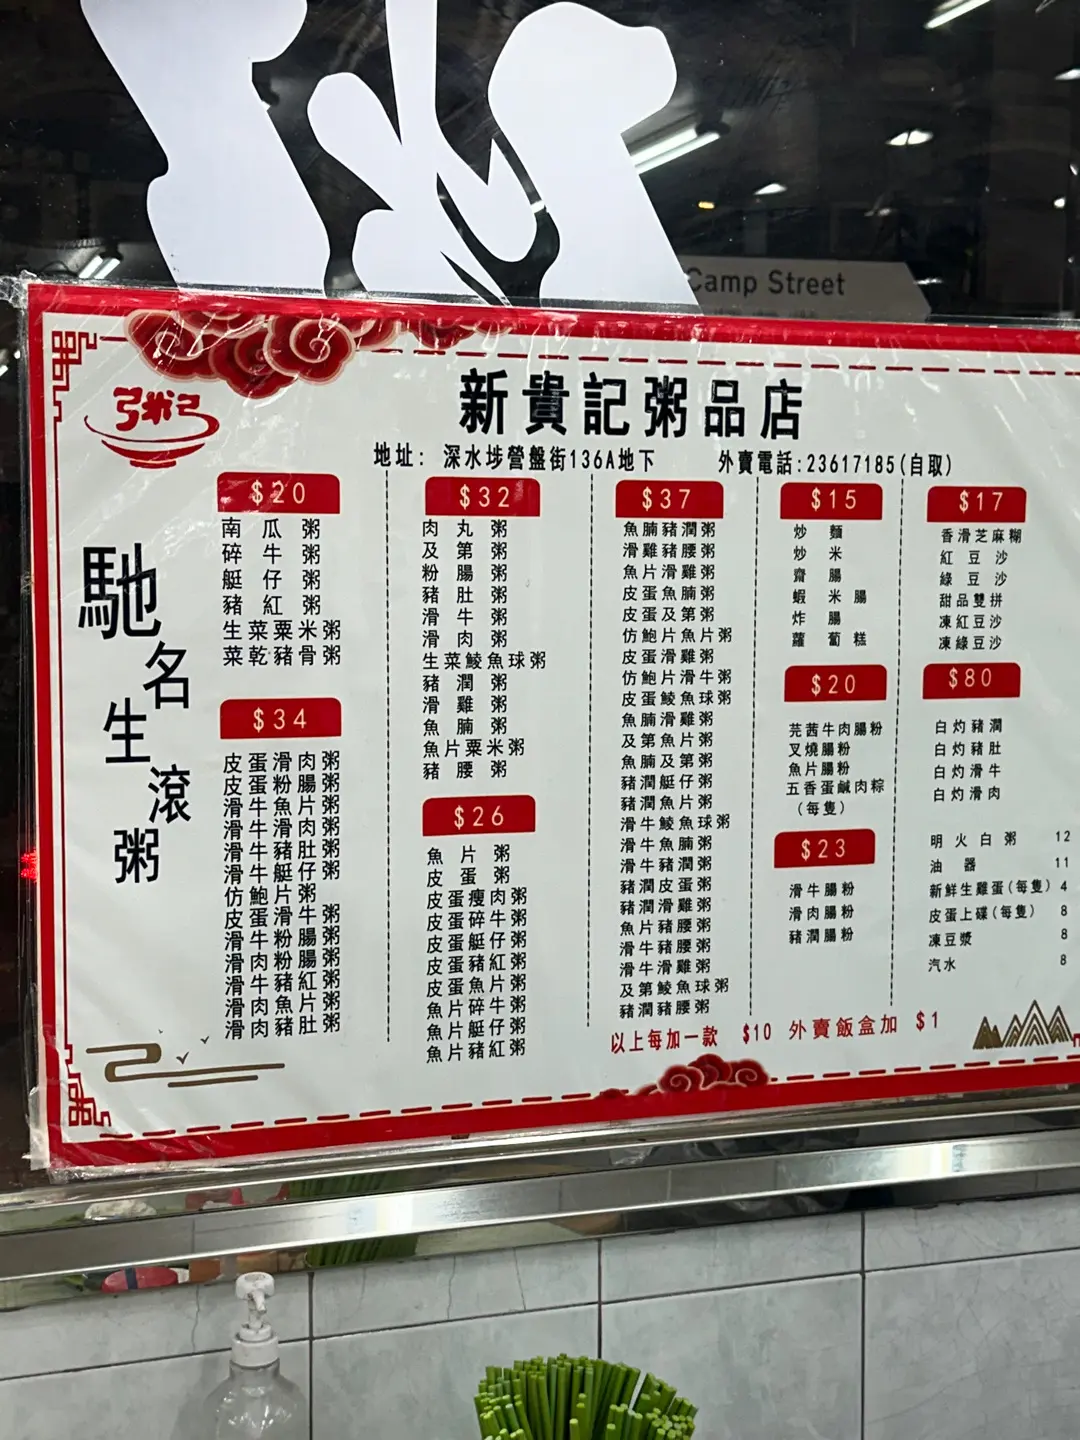 Camp Street
粥
新貴記粥品店
地址: 深水埗營盤街136A地下
外賣電話:23617185(自取)
馳名生滾粥
$20
南瓜粥
碎牛粥
艇仔粥
豬紅粥
生菜粟米粥
菜乾豬骨粥
$34
皮蛋滑肉粥
皮蛋粉腸粥
滑牛魚片粥
滑牛滑肉粥
滑牛豬肚粥
滑牛艇仔粥
仿鮑片粥
皮蛋滑牛粥
滑牛粉腸粥
滑肉粉腸粥
滑牛豬紅粥
滑肉魚片粥
滑肉豬肚粥
$32
肉丸粥
及第粥
粉腸粥
豬肚粥
滑牛粥
滑肉粥
生菜鯪魚球粥
豬潤粥
滑雞粥
魚腩粥
魚片粟米粥
豬腰粥
$26
魚片粥
皮蛋粥
皮蛋瘦肉粥
皮蛋碎牛粥
皮蛋艇仔粥
皮蛋豬紅粥
皮蛋魚片粥
魚片碎牛粥
魚片艇仔粥
魚片豬紅粥
$37
魚腩豬潤粥
滑雞豬腰粥
魚片滑雞粥
皮蛋魚腩粥
皮蛋及第粥
仿鮑片魚片粥
皮蛋滑雞粥
仿鮑片滑牛粥
皮蛋鯪魚球粥
魚腩滑雞粥
及第魚片粥
魚腩及第粥
豬潤艇仔粥
豬潤魚片粥
滑牛鯪魚球粥
滑牛魚腩粥
滑牛豬潤粥
豬潤皮蛋粥
豬潤滑雞粥
魚片豬腰粥
滑牛豬腰粥
滑牛滑雞粥
及第鯪魚球粥
豬潤豬腰粥
$15
炒麵
炒米
齋腸
蝦米腸
炸腸
蘿蔔糕
$20
芫茜牛肉腸粉
叉燒腸粉
魚片腸粉
五香蛋鹹肉粽
(每隻)
$23
滑牛腸粉
滑肉腸粉
豬潤腸粉
$17
香滑芝麻糊
紅豆沙
綠豆沙
甜品雙拼
凍紅豆沙
凍綠豆沙
$80
白灼豬潤
白灼豬肚
白灼滑牛
白灼滑肉
明火白粥 12
油器 11
新鮮生雞蛋(每隻) 4
皮蛋上碟(每隻) 8
凍豆漿 8
汽水 8
以上每加一款 $10 外賣飯盒加 $1